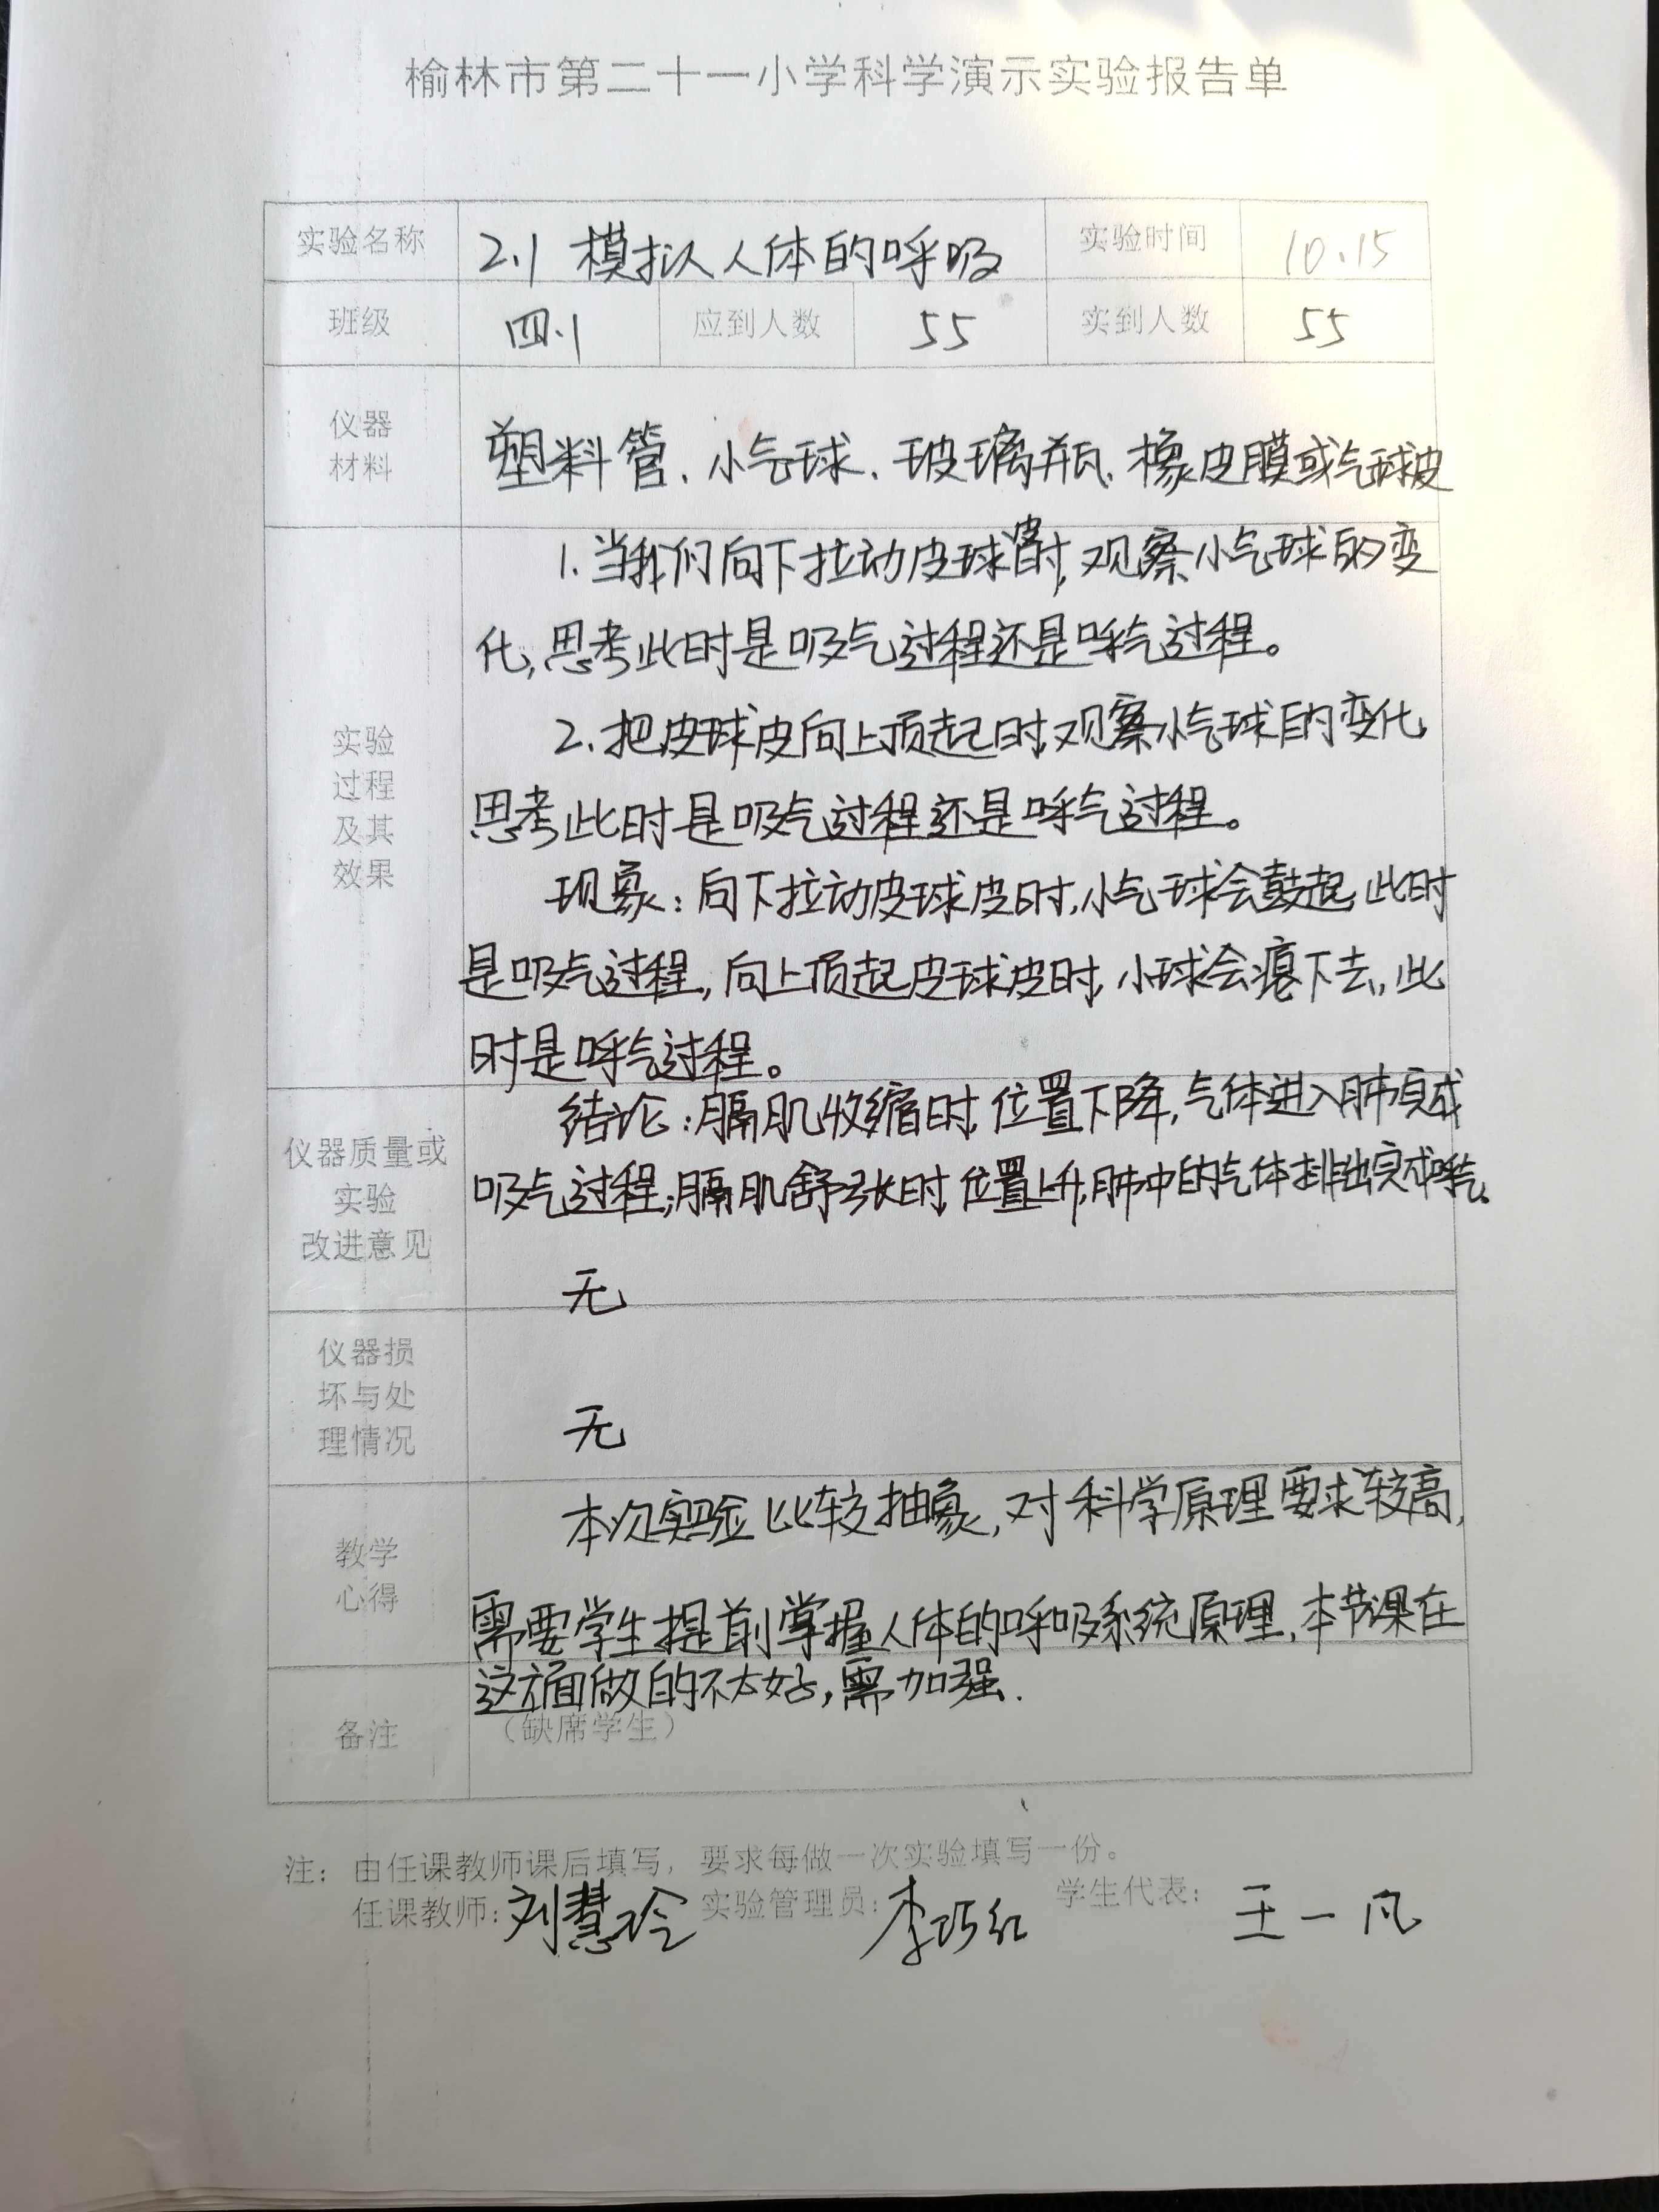 榆林市第二十一小学科学演示实验报告单
实验名称 2.1 模拟人体的呼吸 实验时间 10.15
班级 四.1 应到人数 55 实到人数 55
仪器
材料
塑料管、小气球、玻璃瓶、橡皮膜或气球皮
实验
过程
及其
效果
1.当我们向下拉动皮球皮时,观察小气球的变
化,思考此时是吸气过程还是呼气过程。
2.把皮球皮向上顶起时,观察小气球的变化,
思考此时是吸气过程还是呼气过程。
现象:向下拉动皮球皮时,小气球会鼓起,此时
是吸气过程,向上顶起皮球皮时,小球会瘪下去,此
时是呼气过程。
仪器质量或
实验
改进意见
结论:膈肌收缩时,位置下降,气体进入肺完成
吸气过程;膈肌舒张时,位置上升,肺中的气体排出完成呼气。
无
仪器损
坏与处
理情况
无
教学
心得
本次实验比较抽象,对科学原理要求较高,
需要学生提前掌握人体的呼吸系统原理,本节课在
这方面做的不太好,需加强.
备注 (缺席学生)
注:由任课教师课后填写,要求每做一次实验填写一份。
任课教师:刘慧玲 实验管理员:李巧红 学生代表:王一凡